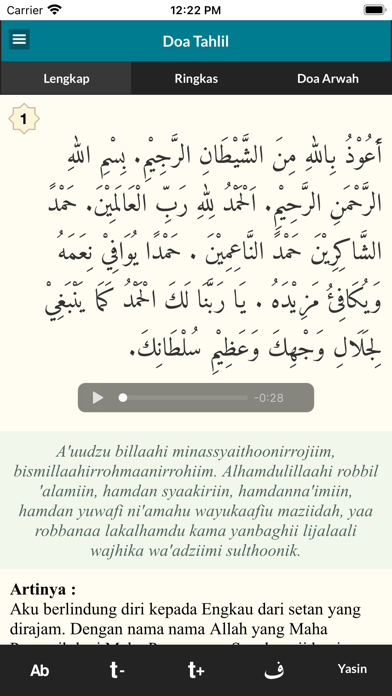 Carrier 12:22 PM
Doa Tahlil
Lengkap Ringkas Doa Arwah
1
أَعُوْذُ بِاللهِ مِنَ الشَّيْطَانِ الرَّجِيْمِ. بِسْمِ اللهِ
الرَّحْمَنِ الرَّحِيْمِ. اَلْحَمْدُ لِلهِ رَبِّ الْعَالَمِيْنَ. حَمْدً
الشَّاكِرِيْنَ حَمْدً النَّاعِمِيْنَ. حَمْدًا يُوَافِيْ نِعَمَهُ
وَيُكَافِئُ مَزِيْدَهُ . يَا رَبَّنَا لَكَ الْحَمْدُ كَمَا يَنْبَغِيْ
لِجَلَالِ وَجْهِكَ وَعَظِيْمِ سُلْطَانِكَ.
-0:28
A'uudzu billaahi minassyaithoonirrojiim,
bismillaahirrohmaanirrohiim. Alhamdulillaahi robbil
'alamiin, hamdan syaakiriin, hamdanna'imiin,
hamdan yuwafi ni'amahu wayukaafiu maziidah, yaa
robbanaa lakalhamdu kama yanbaghii lijalaali
wajhika wa'adziimi sulthoonik.
Artinya :
Aku berlindung diri kepada Engkau dari setan yang
dirajam. Dengan nama nama Allah yang Maha
Ab t- t+ ف Yasin